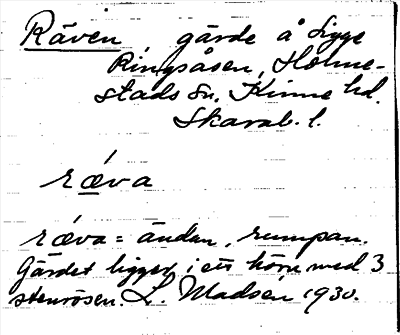 Räven, gärde å Sigge
Ringsåsen, Holme-
stads sn. Kinne hd.
Skarab. l.
ræva
ræva = ändan, rumpan.
Gärdet ligger i ett hörn med 3
stenrösen. L. Madsén 1930.